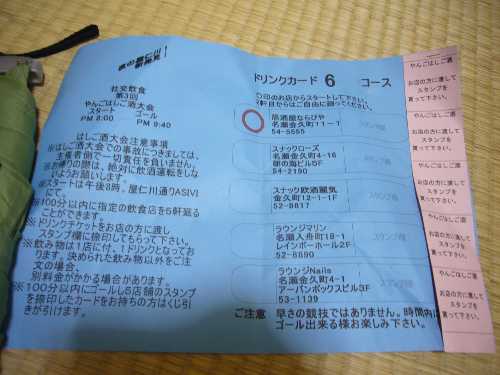 社交飲食
第3回
やんごはしご酒大会
スタート ゴール
PM 8:00 PM 9:40
はしご酒大会注意事項
※はしご酒大会での事故につきましては、
主催者側で一切責任を負いません。
※お帰りの際は、絶対に飲酒運転をしな
いようお願いします。
※スタートは午後8時。屋仁川通りASIVI
にて。
※100分以内に指定の飲食店を5軒廻る
ことができます。
※ドリンクチケットをお店の方に渡し
スタンプ欄に捺印してもらって下さい。
※飲み物は1店に付、1ドリンクとなってお
ります。決められた飲み物以外をご注
文の場合、
別料金がかかる場合があります。
※100分以内にゴールし5店舗のスタンプ
を捺印したカードをお持ちの方はくじ引
きが引けます。
ドリンクカード 6 コース
○印のお店からスタートして下さい。
2軒目からはご自由に廻ってください。
居酒屋ならびや
名瀬金久町11-1
54-5555
スタンプ欄
スナックローズ
名瀬金久町4-16
54-2190
スタンプ欄
スナック
金久町12-1-1F
52-8817
スタンプ欄
ラウンジマリン
名瀬入舟町18-1
レインボーホール2F
52-8890
スタンプ欄
ラウンジNails
名瀬金久町4-1
アーバンボックスビル3F
53-1139
スタンプ欄
ご注意 早さの競技ではありません。時間内に
ゴール出来る様お楽しみ下さい。
やんごはしご酒
お店の方に渡して
スタンプを
買って下さい。
やんごはしご酒
お店の方に渡して
スタンプを
買って下さい。
やんごはしご酒
お店の方に渡して
スタンプを
買って下さい。
やんごはしご酒
お店の方に渡して
スタンプを
買って下さい。
やんごはしご酒
お店の方に渡して
スタンプを
買って下さい。